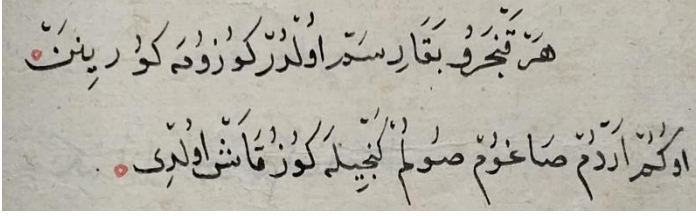 هَرْ قَنْجَرُو بَقَارِسَمْ اوُلْدُرْ كوُزوُمَه كوُرِينَنْ
اوكُمْ اَرْدُمْ صَاغوُمْ صوُلُمْ كَنْجِيلَه كوُزْ قَاشْ اوُلْدِى